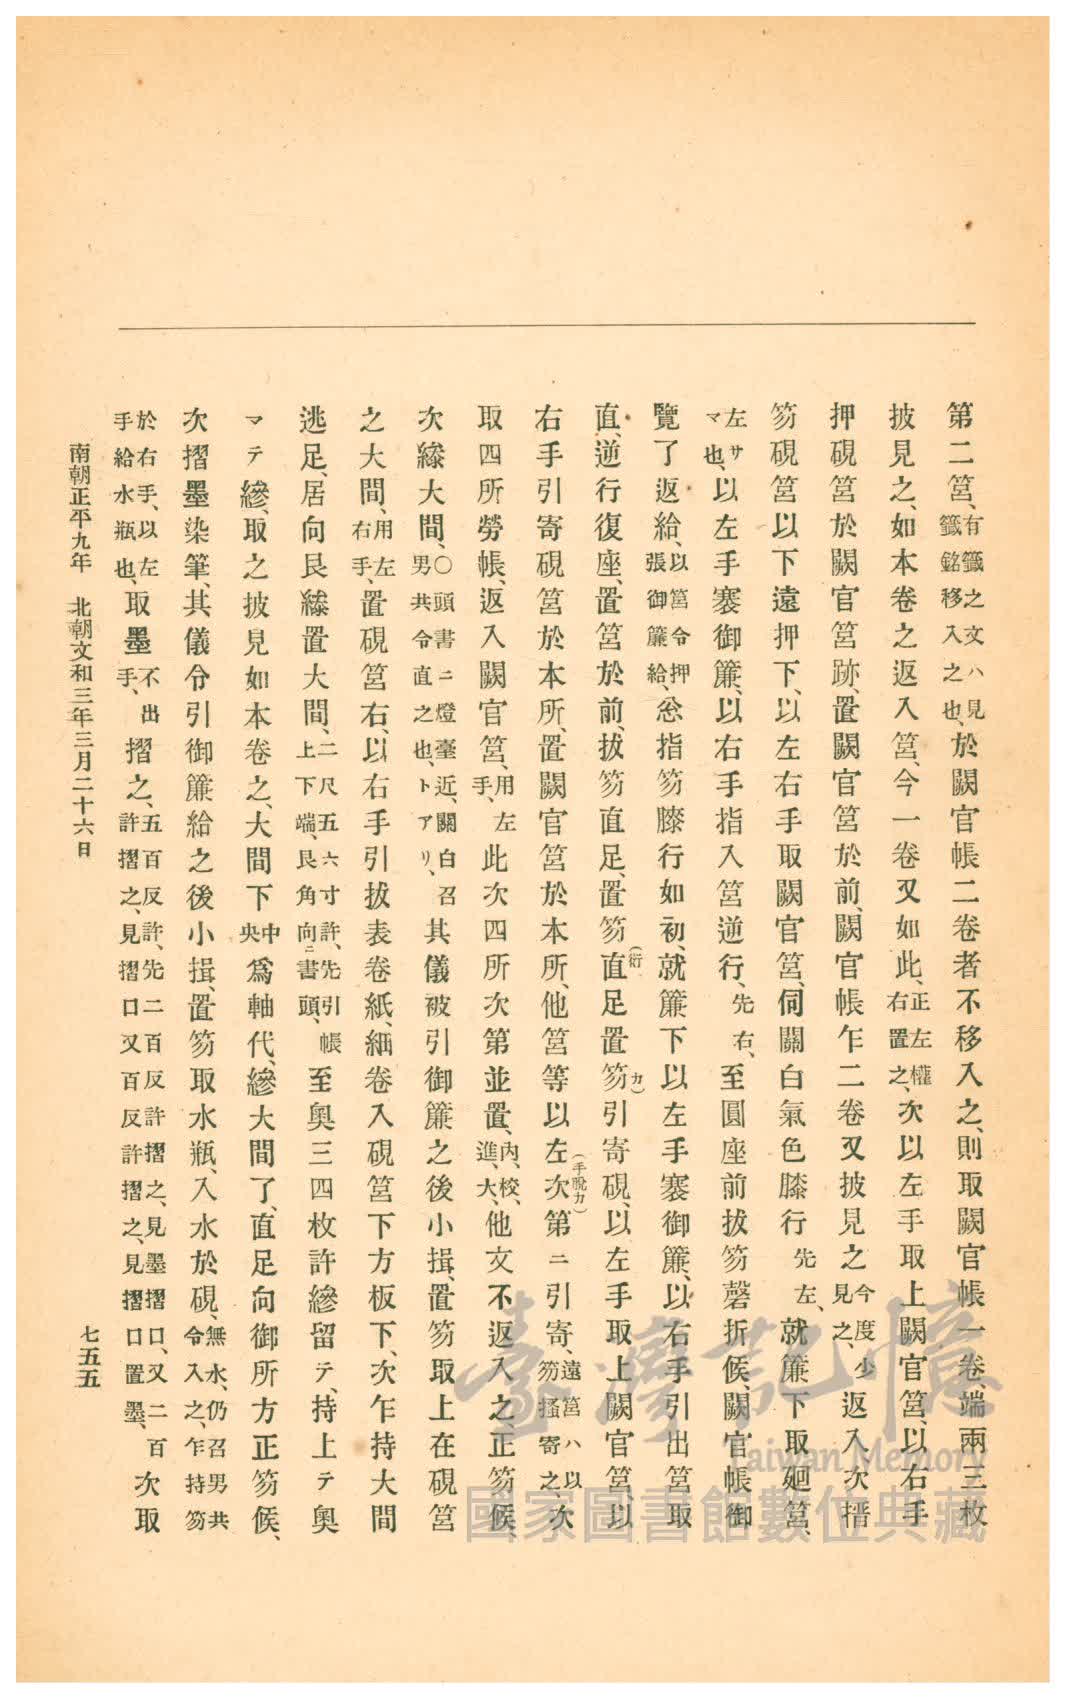 第二筥、有籤之文ハ見籤銘移入之也、於闕官帳二卷者不移入之、則取闕官帳一卷、端兩三枚
披見之、如本卷之返入筥、今一卷又如此、正左權右置之、次以左手取上闕官筥、以右手
押硯筥於闕官筥跡、置闕官筥於前、闕官帳乍二卷又披見之今度少見之、返入次搢
笏硯筥以下遠押下、以左右手取闕官筥、伺關白氣色膝行先左、就簾下取廻筥、
左サマ也、以左手褰御簾、以右手指入筥逆行、先右、至圓座前拔笏磬折候、闕官帳御
覽了返給、以筥令押張御簾給、忩指笏膝行如初、就簾下以左手褰御簾、以右手引出筥取
直、逆行復座、置筥於前、拔笏直足、置笏直足置笏引寄硯、以左手取上闕官筥、以
(衍カ)
右手引寄硯筥於本所、置闕官筥於本所、他筥等以左次第ニ引寄、遠筥ハ以笏搔寄之、次
(手脫カ)
取四所勞帳、返入闕官筥、用左手、此次四所次第並置、內、校、進、大、他文不返入之、正笏候、
次繰大間、○頭書ニ燈臺近、關白召男共令直之也、トアリ、其儀被引御簾之後小揖、置笏取上在硯筥
之大間、用左右手、置硯筥右、以右手引拔表卷紙、細卷入硯筥下方板下、次乍持大間
逃足、居向艮繰置大間、二尺五六寸許、先引帳上下端、艮角向ニ書頭、至奧三四枚許縿留テ、持上テ奧
マテ縿、取之披見如本卷之、大間下中央爲軸代、縿大間了、直足向御所方正笏候、
次摺墨染筆、其儀令引御簾給之後小揖、置笏取水瓶、入水於硯、無水、仍召男共令入之、乍持笏
於右手、以左手給水瓶也、取墨不出手、摺之、五百反許、先二百反許摺之、見墨摺口、又二百許摺之、見摺口又百反許摺之、見摺口置墨、次取
南朝正平九年 北朝文和三年三月二十六日
七五五
臺灣記憶
Taiwan Memory
國家圖書館數位典藏